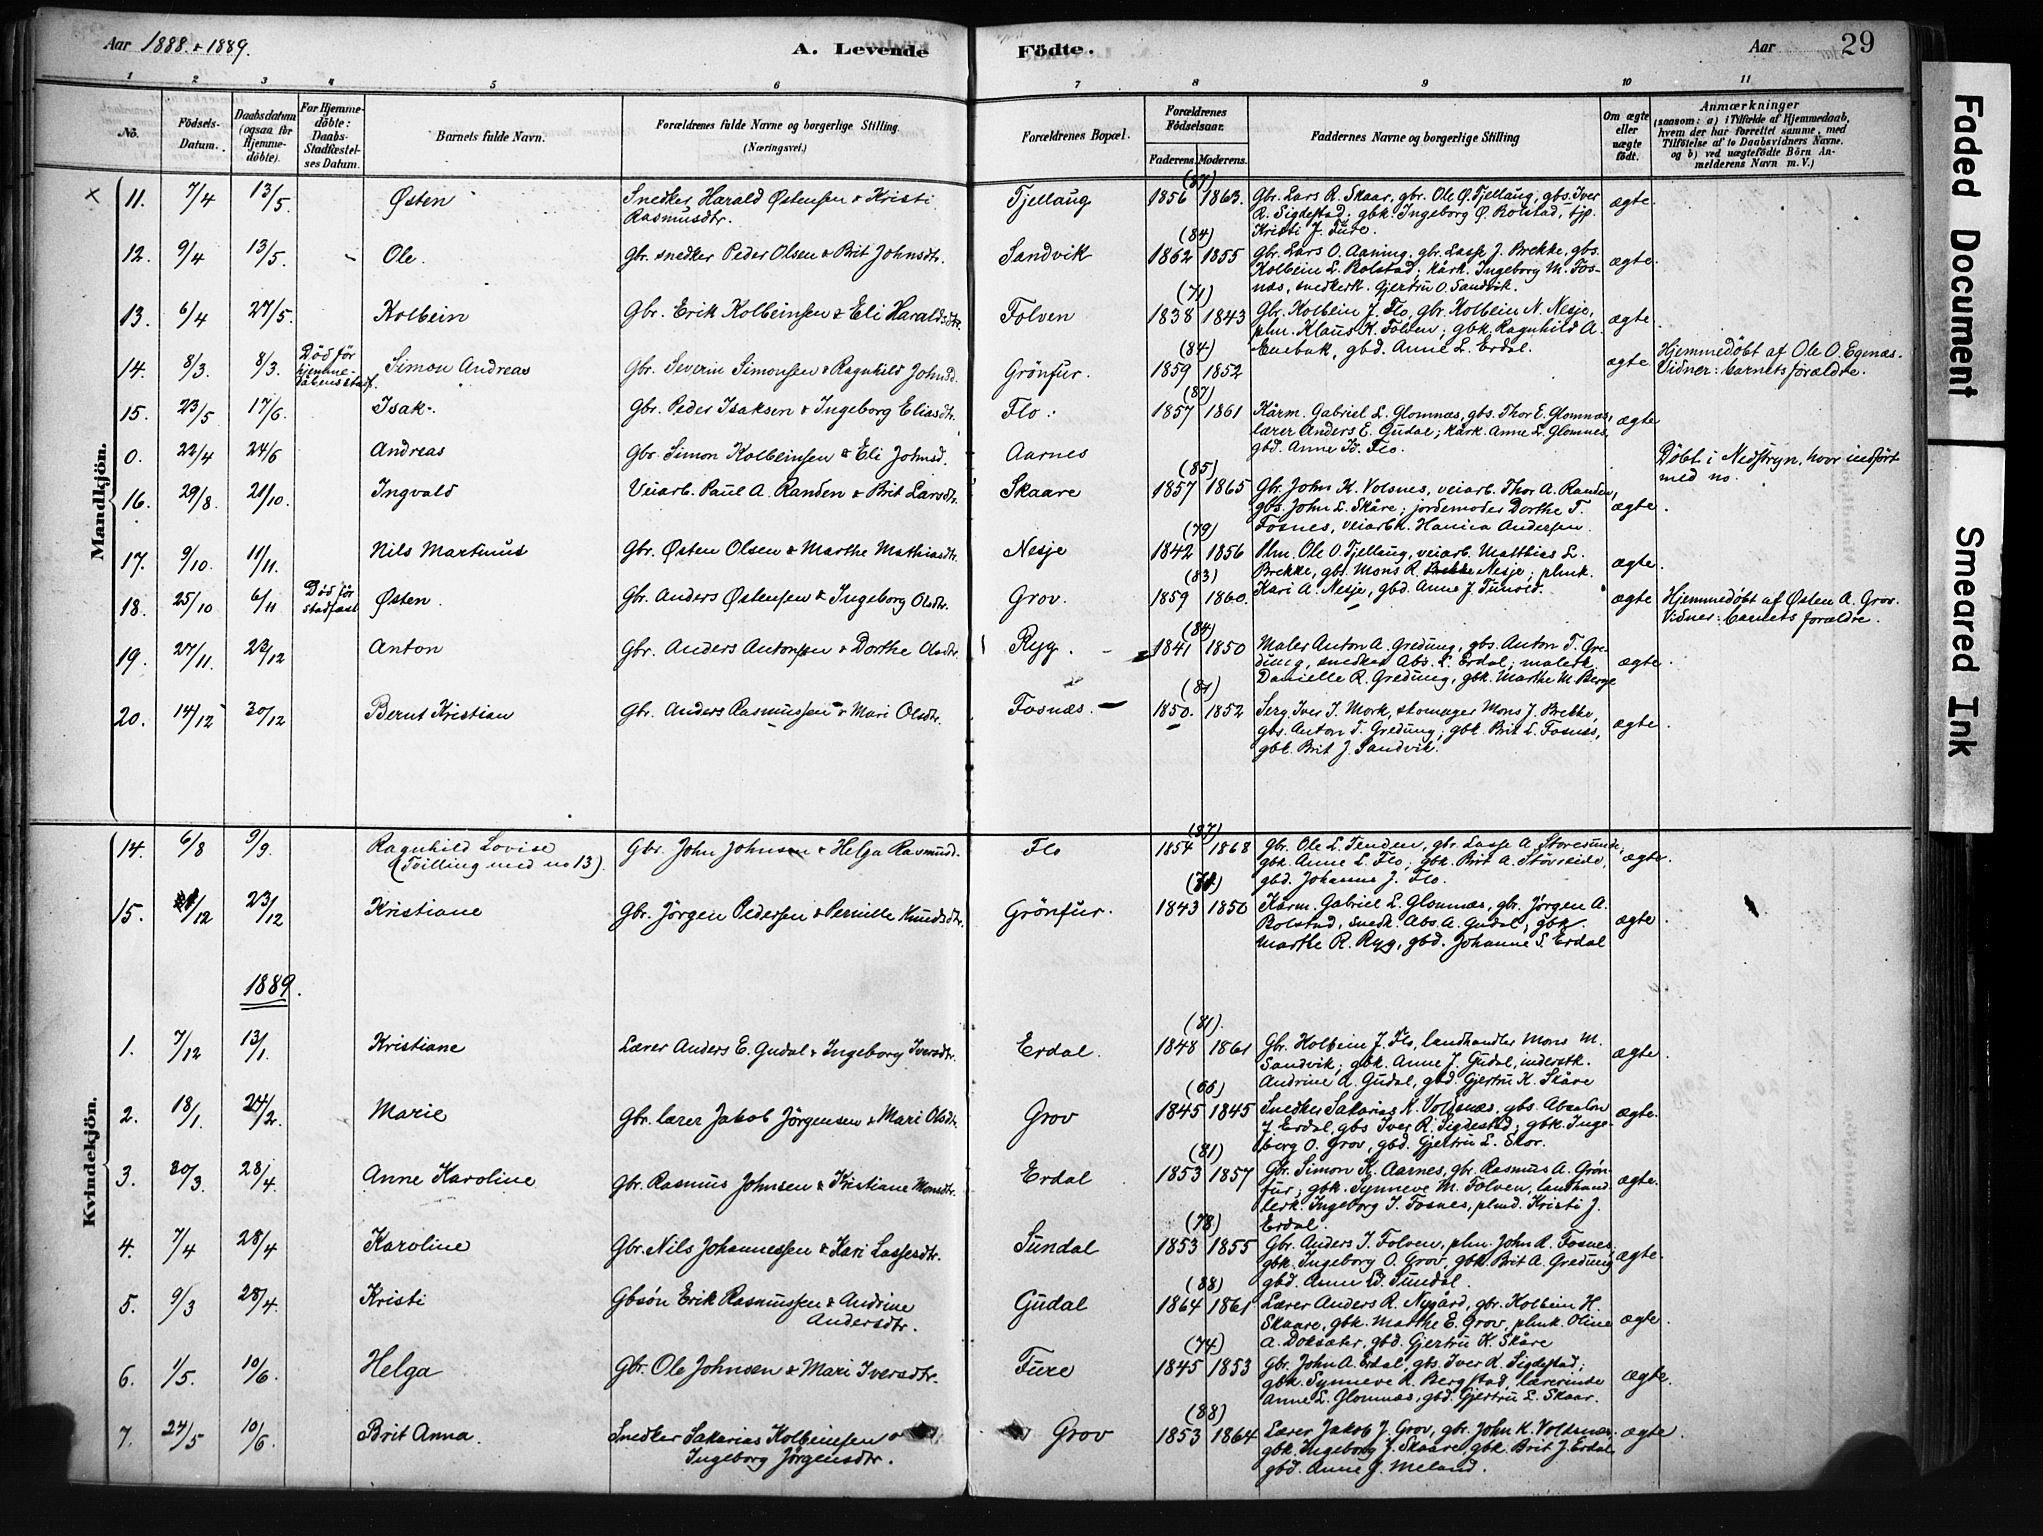 Aar 1888 & 1889.
A. Levende Födte.
Aar 29
1 2 3 4 5 6 7 8 9 10 11
No.
Födsels-Datum.
Daabsdatum (ogsaa för Hjemme-döbte).
For Hjemme-döbte: Daabs-Stadfæstel-ses Datum.
Barnets fulde Navn.
Forældrenes fulde Navne og borgerlige Stilling (Næringsvei.)
Forældrenes Bopæl.
Forældrenes Födselsaar.
Faderens. Moderens.
Faddernes Navne og borgerlige Stilling
Om ægte eller uægte födt.
Anmærkninger
(saasom: a) i Tilfælde af Hjemmedaab, hvem der har forrettet samme, med Tilföielse af to Daabsvidners Navne, og b) ved uægtefödte Börn An-melderens Navn m. V.)
Mandkjön.
× 11. 7/4 13/5. Østen Snedker Harald Østensen & Kristi Rasmusdtr. Tjellaug (87) 1856 1863. Gbr. Lars R. Skaar, gbr. Ole Ø. Tjellaug, gbs. Iver
R. Sigdestad; gbk. Ingeborg Ø. Rolstad, tjp.
Kristi J. Fure. ægte.
12. 9/4 13/5. Ole. Gbr. snedker Peder Olsen & Brit Johnsdtr. Sandvik (84) 1862 1855 Gbr. Lars O. Aaning, gbr. Lasse J. Brekke, gbs.
Kolbein L. Rolstad; kårk. Ingeborg M. Fos-
næs, snedkerk. Gjertru O. Sandvik. ægte.
13. 6/4 27/5. Kolbein Gbr. Erik Kolbeinsen & Eli Haraldsdtr. Folven (71) 1838 1843 Gbr. Kolbein J. Flo, gbr. Kolbein N. Nesje,
plm. Klaus K. Folven; gbk. Ragnhild A.
gbd. Anne L. Erdal. ægte.
14. 8/3. 8/3. Död för hjemme-dåbens stadf. Simon Andreas Gbr. Severin Simonsen & Ragnhild Johnsd. Grönfur. (84) 1859 1852 ægte Hjemmedöbt af Ole O. Egenæs.
Vidner: barnets forældre.
15. 23/5 17/6. Isak. Gbr. Peder Isaksen & Ingeborg Eliasdtr. Flo. (87) 1857 1861 Kårm. Gabriel L. Glomnæs, gbs. Thor E. Glomnæs,
lærer Anders E. Gudal; kårk. Anne L. Glomnes,
gbd. Anne K. Flo. ægte
0. 22/4 24/6 Andreas Gbr. Simon Kolbeinsen & Eli Johnsd. Aarnes Döbt i Nedstryn, hvor indfört
med no.
16. 29/8. 21/10. Ingvald Veiarb. Paul A. Randen & Brit Larsdtr. Skaare (85) 1857 1865 Gbr. John K. Volsnes, veiarb. Thor A. Randen,
gbs. John L. Skåre; jordemoder Dorthe T.
Fosnes, veiarbk. Hanna Andersen. ægte.
17. 9/10. 11/11. Nils Martinus Gbr. Østen Olsen & Marthe Mathiasdtr. Nesje (79) 1842 1856 Plm. Ole O. Tjellaug, veiarb. Matthias L.
Brekke, gbs. Mons R. Nesje; plmk.
Kari A. Nesje, gbd. Anne J. ægte.
18. 25/10 6/11 Död för stadfæst Østen. Gbr. Anders Østensen & Ingeborg Olsdtr. Grov. (83) 1859 1860. ægte Hjemmedöbt af Østen A. Grov.
Vidner: barnets forældre.
19. 27/11. 22/12 Anton Gbr. Anders Antonsen & Dorthe Olsdtr. Ryg. (84) 1841 1850 Maler Anton A. Gredung, gbs. Anton T. Gre-
dung, snedker Abs. L. Erdal; malerk.
Danielle R. Gredung, gbk. Marthe M. Berge ægte.
20. 14/12 30/12 Bernt Kristian Gbr. Anders Rasmussen & Mari Olsdtr. Fosnæs. (81) 1850. 1852 Serg. Iver I. Mork, skomager Mons J. Brekke,
gbs. Anton T. Gredung; gbk. Brit L. Fosnæs,
gbk. Brit J. Sandvik. ægte.
Kvindekjön.
14. 6/8 9/9. Ragnhild Lovise (Tvilling med no 13). Gbr. John Johnsen & Helga Rasmusd. Flo (87) 1854 1868 Gbr. Ole L. Tenden, gbr. Lasse A. Storesunde,
gbk. Anne L. Flo, gbk. Brit A.
gbd. Johanne J. Flo. ægte.
15. /12 23/12 Kristiane Gbr. Jörgen Pedersen & Pernille Knudsdtr. Grönfur. 1843 1850 Kårm. Gabriel L. Glomnæs, gbr. Jörgen A.
Rolstad, snedk. Abs. A. Gudal; gbk.
Marthe R. Ryg, gbd. Johanne S. Erdal ægte.
1889.
1. 7/12 13/1. Kristiane Lærer Anders E. Gudal & Ingeborg Iversdtr. Erdal. (81). 1848 1861 Gbr. Kolbein J. Flo, landhandler Mons M.
Sandvik; gbk. Anne J. Gudal, inderstk.
Andrine A. Gudal, gbd. Gjertru K. Skåre ægte.
2. 18/1. 24/2. Marie Gbr. lærer Jakob Jörgensen & Mari Olsdtr. Grov (66) 1845 1845 Snedker Sakarias K. Voldsnæs, gbs. Absalon
J. Erdal, gbs Iver R. Sigdestad; gbk. Inge-
borg O. Grov, gbd. Gjertru L. Skor. ægte.
3. 20/3. 28/4. Anne Karoline Gbr. Rasmus Johnsen & Kristiane Monsdtr. Erdal (81) 1853 1857 Gbr. Simon K. Aarnes, gbr. Rasmus A. Grön-
fur; gbk. Synneve M. Folven, landhand-
lerk. Ingeborg I. Fosnes, plmd. Kristi J.
Erdal. ægte.
4. 7/4 28/4 Karoline Gbr. Nils Johannessen & Kari Lassesdtr. Sundal (78) 1853 1855 Gbr. Anders I. Folven, plm. John R. Fosnes,
gbk. Ingeborg O. Grov, gbk. Brit A. Gredung,
gbd. Anne Sundal. ægte.
5. 9/3 28/4. Kristi Gbsön Erik Rasmussen & Andrine Andersdtr. Gudal (88) 1864 1861 Lærer Anders R. Nygård, gbr. Kolbein H.
Skaare, gbk. Marthe E. Grov, plmk. Oline
A. Doksæter, gbd. Gjertru K. Skåre ægte.
6. 1/5. 10/6. Helga Gbr. Ole Johnsen & Mari Iversdtr. Fure (74) 1845 1853 Gbr. John A. Erdal, gbs. Iver R. Sigdestad;
gbk. Synneve R. Bergstad, lærerinde
Anne L. Glomnæs, gbd. Gjertru L. Skaar. ægte.
7. 24/5 10/6. Brit Anna. Snedker Sakarias Kolbeinsen & Ingeborg Jörgensdtr. Grov (88) 1853 1864 Lærer Jakob J. Grov, gbr. John K. Voldsnæs
gbk. Ingeborg J. Skaare, gbk. Brit J. Erdal
gbd. Anne J. Meland. ægte.
Faded Document
Smeared Ink